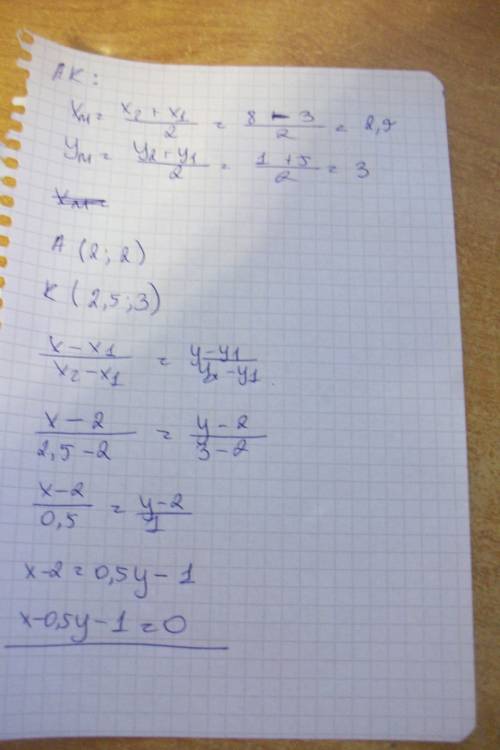 AK:
xм = (x2 + x1)/2 = (8 - 3)/2 = 2,5
yм = (y2 + y1)/2 = (1 + 5)/2 = 3
A (2; 2)
K (2,5; 3)
(x - x1)/(x2 - x1) = (y - y1)/(y2 - y1)
(x - 2)/(2,5 - 2) = (y - 2)/(3 - 2)
(x - 2)/0,5 = (y - 2)/1
x - 2 = 0,5y - 1
x - 0,5y - 1 = 0